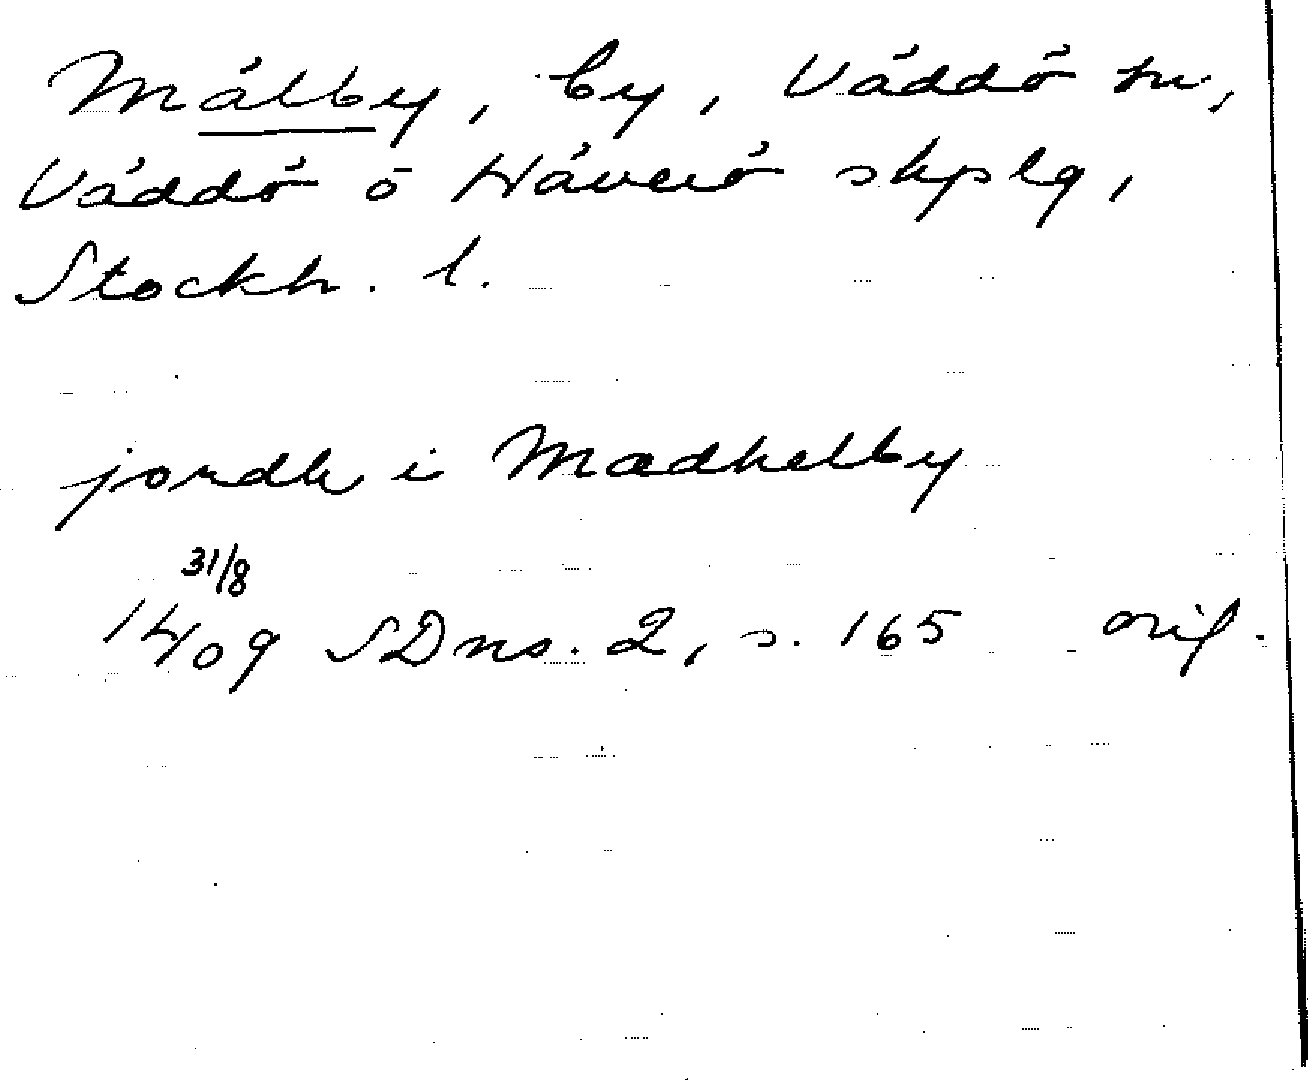 Mälby, by, Väddö sn,
Väddö o Häverö skplg,
Stockh. l.
jordh i Madhelby
31/8
1409 SDns. 2, s. 165 orig.